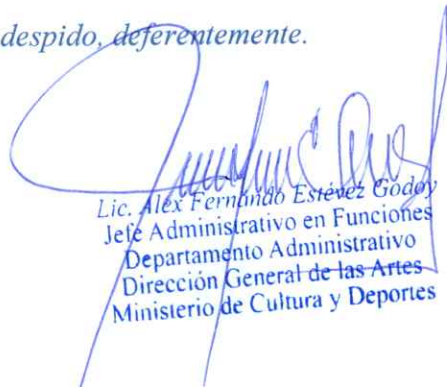 despido, deferentemente.
Lic. Alex Fernando Estévez Godoy
Jefe Administrativo en Funciones
Departamento Administrativo
Dirección General de las Artes
Ministerio de Cultura y Deportes